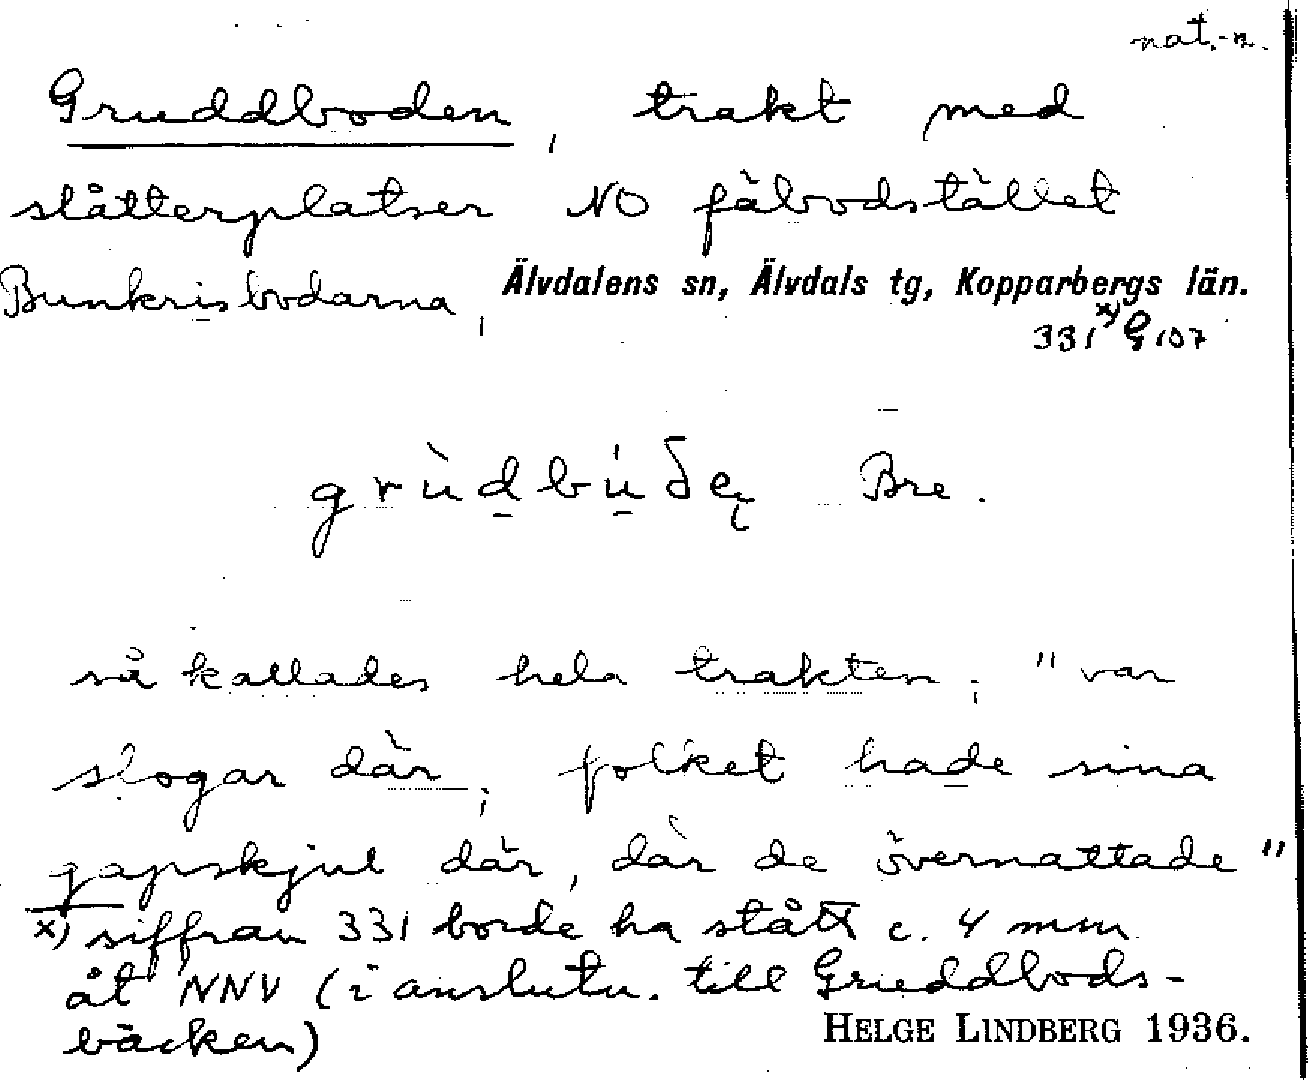 nat.-n.
Gruddboden, trakt med
slåtterplatser NO fäbodstället
Bunkrisbodarna, Älvdalens sn, Älvdals tg, Kopparbergs län.
331 x) G 107
grùdbúðę Bre.
så kallades hela trakten; "var
slogar där; folket hade sina
gapskjul där, där de övernattade"
x) siffran 331 borde ha stått c. 4 mm
åt NNV (i anslutn. till Gruddbods-
bäcken)
HELGE LINDBERG 1936.